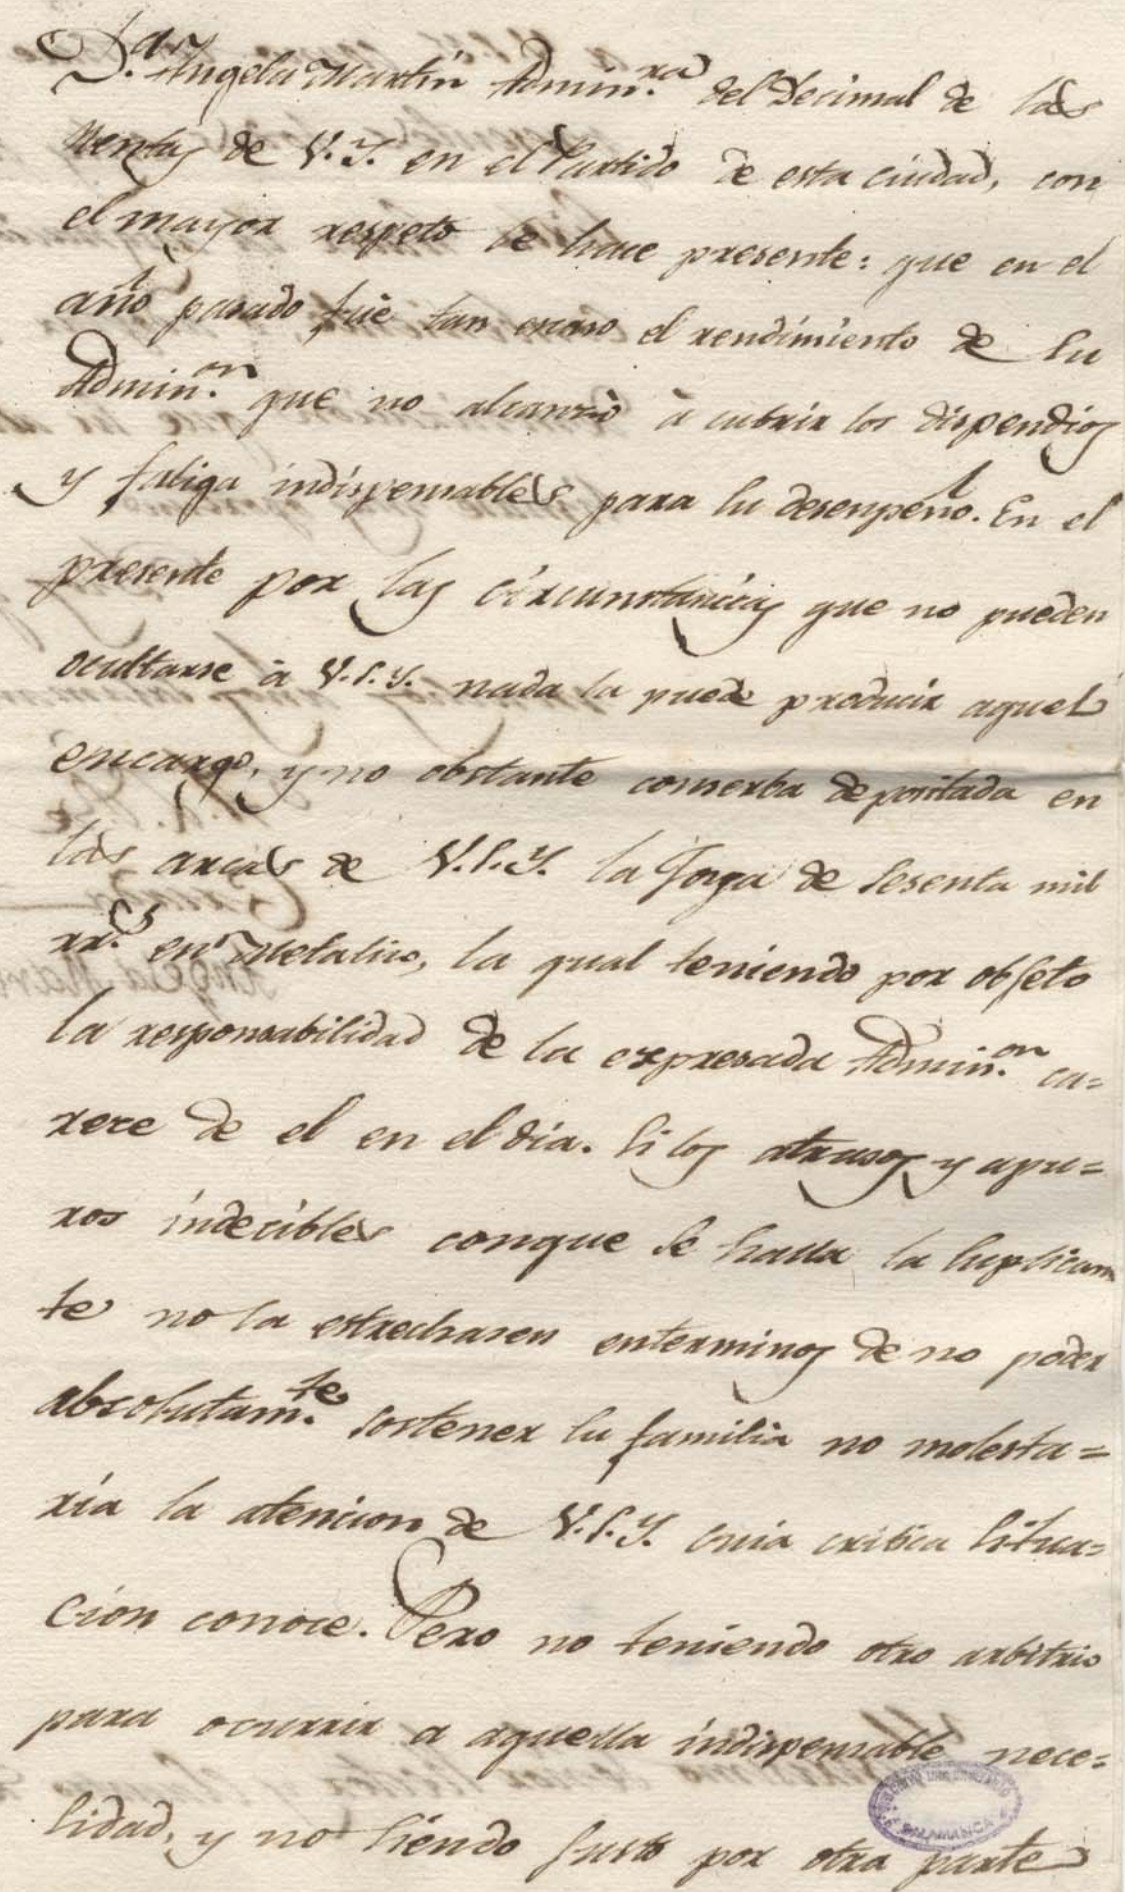 D.ª Angela Martin Admin.ra del Decimal de las
Rentas de V.Y. en el Partido de esta ciudad, con
el mayor respeto le hace presente: que en el
año pasado fué tan escaso el rendimiento de su
Admin.on que no alcanzó à cubrir los dispendios
y fatiga indispensables para su desempeño. En el
presente por las circunstancias que no pueden
ocultarse à V.S.Y. nada la puede producir aquel
encargo, y no obstante conserba depositada en
las arcas de V.S.Y. la de sesenta mil
rr.s en Metalico, la qual teniendo por objeto
la responsabilidad de la expresada Admin.on ca=
rece de el en el dia. Si los atrasos y apu=
ros indecibles conque se halla la suplican
te no la estrechasen enterminos de no poder
absolutam.te sostener su familia no molesta=
ria la atencion de V.S.Y. cuia critica situa=
cion conoce. Pero no teniendo otro arbitrio
para ocurrir a aquella indispensable nece=
sidad, y no siendo justo por otra parte
SALAMANCA